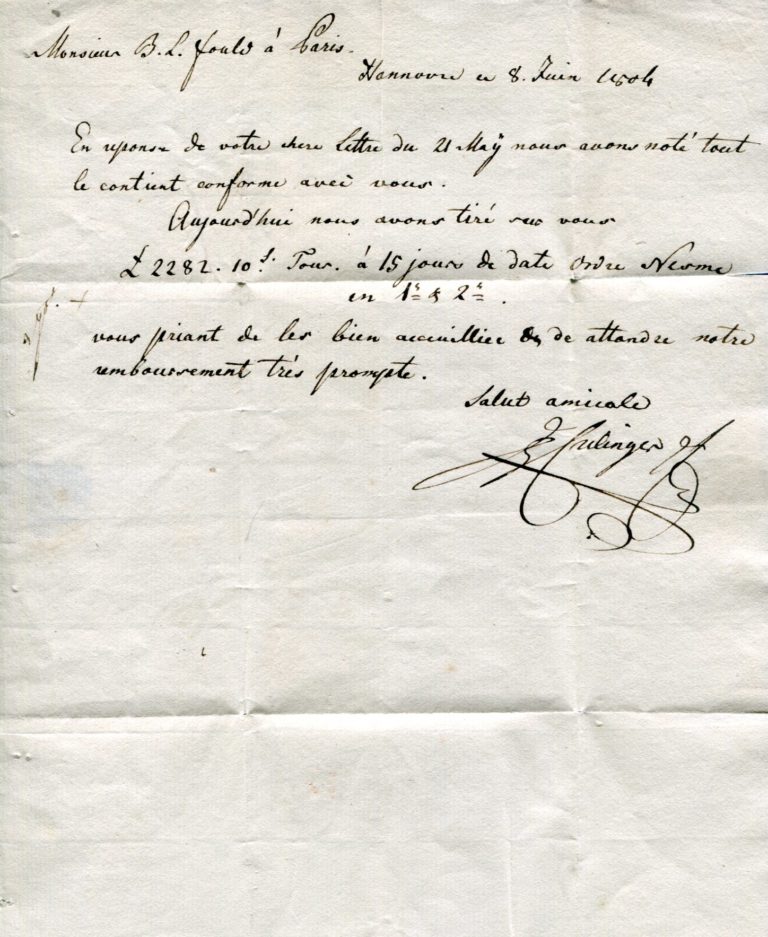 Monsieur B. L. fould à Paris.
Hannovre ce 8. Juin 1804
En reponse de votre chere Lettre du 21 Maÿ nous avons noté tout
le contient conforme avec vous.
Aujourd'hui nous avons tiré sur vous
£ 2282. 10 s. Tour. à 15 jours de date Ordre Nesme
en 1r & 2e.
vous priant de les bien accuillier & de attandre notre
remboursement très prompte.
Salut amicale